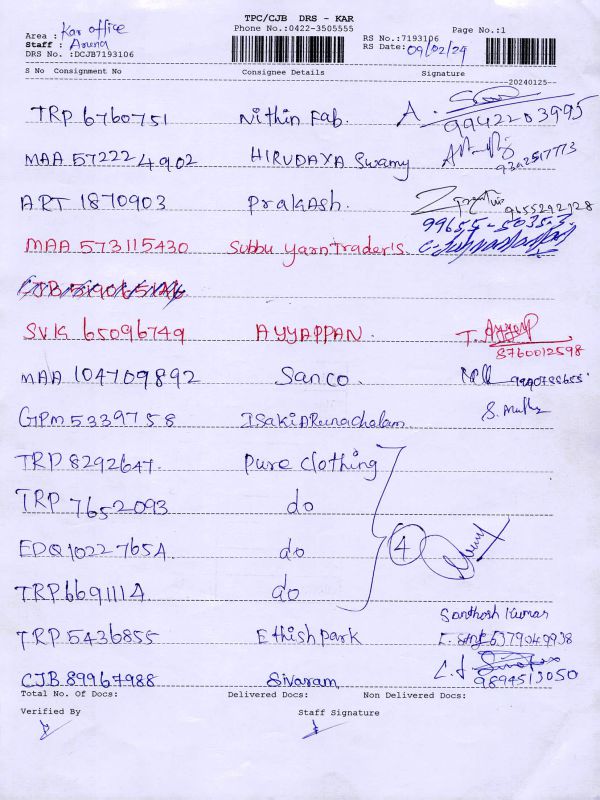 TPC/CJB DRS - KAR
Phone No.:0422-3505555
Page No.:1
Area : Kar office
Staff : Aruna
DRS No. :DCJB7193106
RS No.:7193106
RS Date: 09/02/24
S No Consignment No Consignee Details Signature
20240125
TRP 6760751 Nithin Fab. A. 9942203995
MAA 572224902 HIRUDAYA Swamy 9302517773
ART 1870903 Prakash. 9655292128
99655-50353
MAA 573115430 Subbu yarn Trader's
SVK 65096749 AYYAPPAN. T.
8760012598
MAA 104709892 Sanco.
GPM 5339758 ISakiARunachalam
TRP 8292647. Pure Clothing
TRP 7652093 do
EDQ1022765A. do 4
TRP6691114 do
Santhosh Kumar
TRP 5436855 Ethishpark 6379049938
CJB 89967988 Sivaram 9894513050
Total No. Of Docs: Delivered Docs: Non Delivered Docs:
Verified By Staff Signature